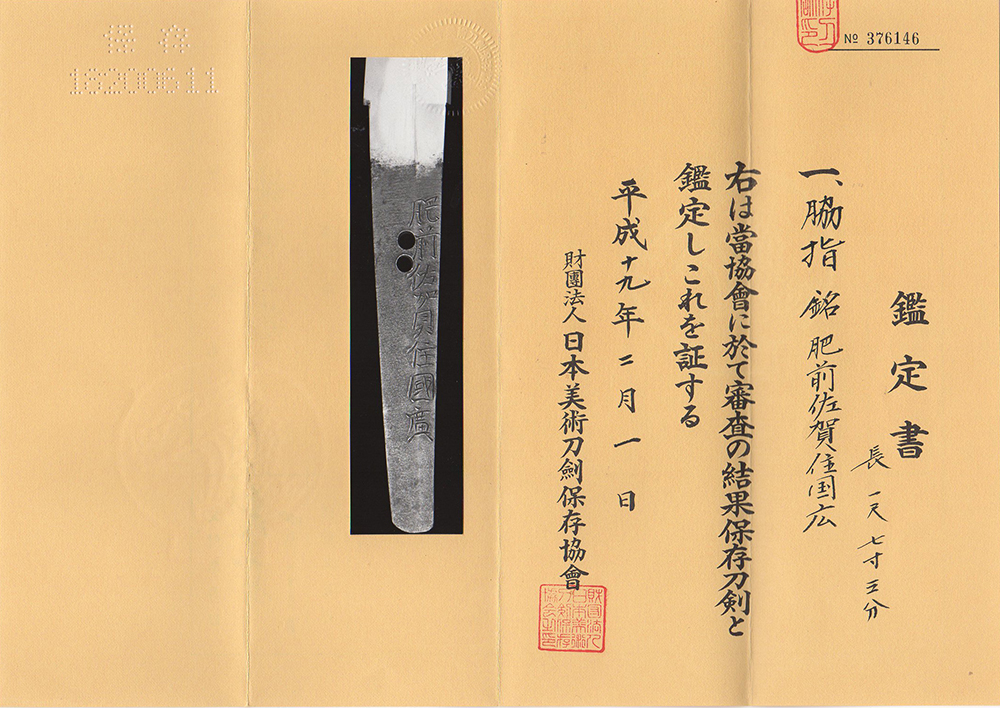 № 376146
鑑定書
長 一尺七寸五分
一、脇指 銘 肥前佐賀住国広
右は當協會に於て審査の結果保存刀剣と
鑑定しこれを証する
平成十九年二月一日
財團法人 日本美術刀劍保存協會
財団法人日本美術刀剣保存協会之印
肥前佐賀住國廣
保存
18200611